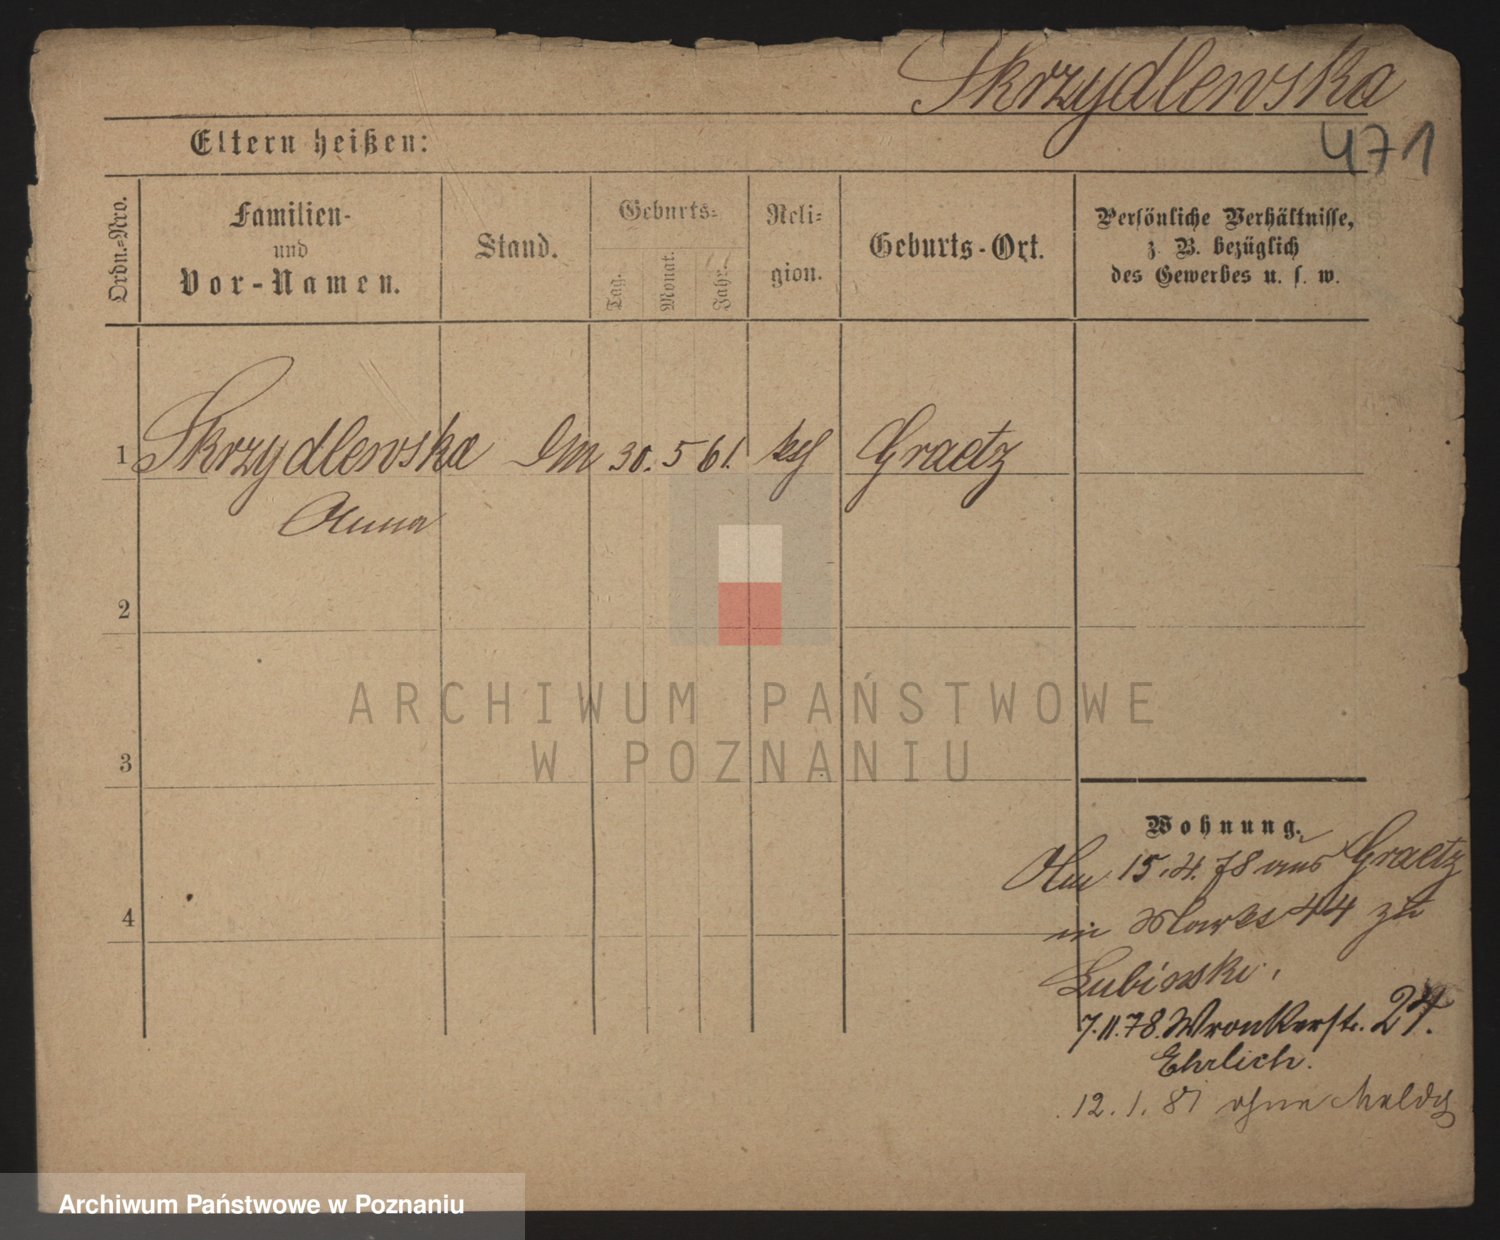 Skrzydlewska
471
Eltern heißen:
Ordn.-Nro.
Familien-
und
Vor-Namen.
Stand.
Geburts-
Tag.
Monat.
Jahr.
Reli-
gion.
Geburts-Ort.
Persönliche Verhältnisse,
z. B. bezüglich
des Gewerbes u. s. w.
1 Skrzydlewska 30. 5 61. Graetz
Anna
2
3
4
ARCHIWUM PAŃSTWOWE
W POZNANIU
Wohnung.
15.4.78 aus Graetz
in 44 zu
Lubinski.
7.11.78. Wronkerstr. 24.
Ehrlich.
12.1.81 ohne Meldg
Archiwum Państwowe w Poznaniu